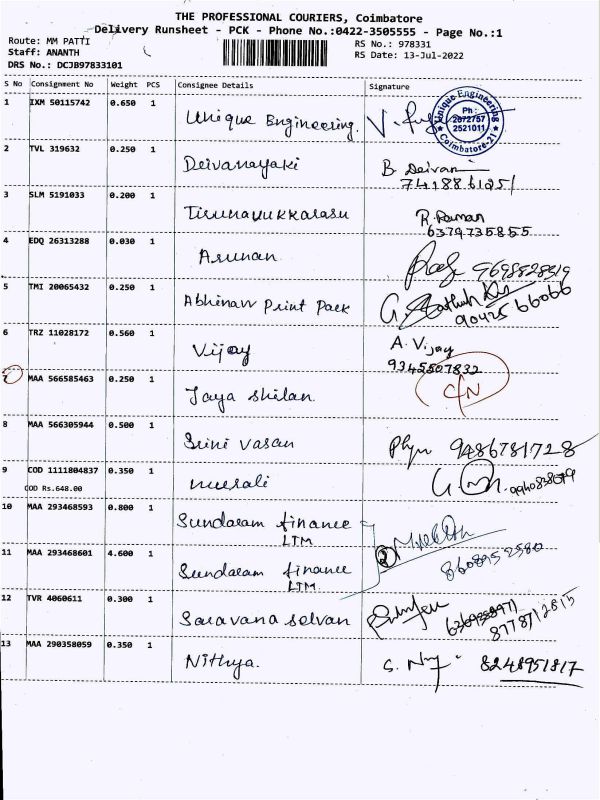 THE PROFESSIONAL COURIERS, Coimbatore
Delivery Runsheet - PCK - Phone No.:0422-3505555 - Page No.:1
Route: MM PATTI
Staff: ANANTH
DRS No.: DCJB97833101
RS No.: 978331
RS Date: 13-Jul-2022
S No Consignment No Weight PCS Consignee Details Signature
1 IXM 50115742 0.650 1 Unique Engineering. V.
Unique Engineering
Ph:
2672757
2521011
Coimbatore-21
2 TVL 319632 0.250 1 Deivanayaki B Deivani
7418861251
3 SLM 5191033 0.200 1 Tirunavukkarasu R. Raman
6379735855
4 EDQ 26313288 0.030 1 Arunan 9698828519
5 TMI 20065432 0.250 1 Abhinav Print Pack G.
90425 66066
6 TRZ 11028172 0.560 1 Vijay A. Vijay
9345507832
MAA 566585463 0.250 1 Jaya shilan. C/N
8 MAA 566305944 0.500 1 Srini vasan 9486781728
9 COD 1111804837 0.350 1 murali
COD Rs.648.00
10 MAA 293468593 0.800 1 Sundaram finance
LTM
2
8608952580
11 MAA 293468601 4.600 1 Sundaram finance
LTM.
12 TVR 4060611 0.300 1 Saravana selvan
8778712815
13 MAA 290358059 0.350 1 Nithya. S. 8248951817